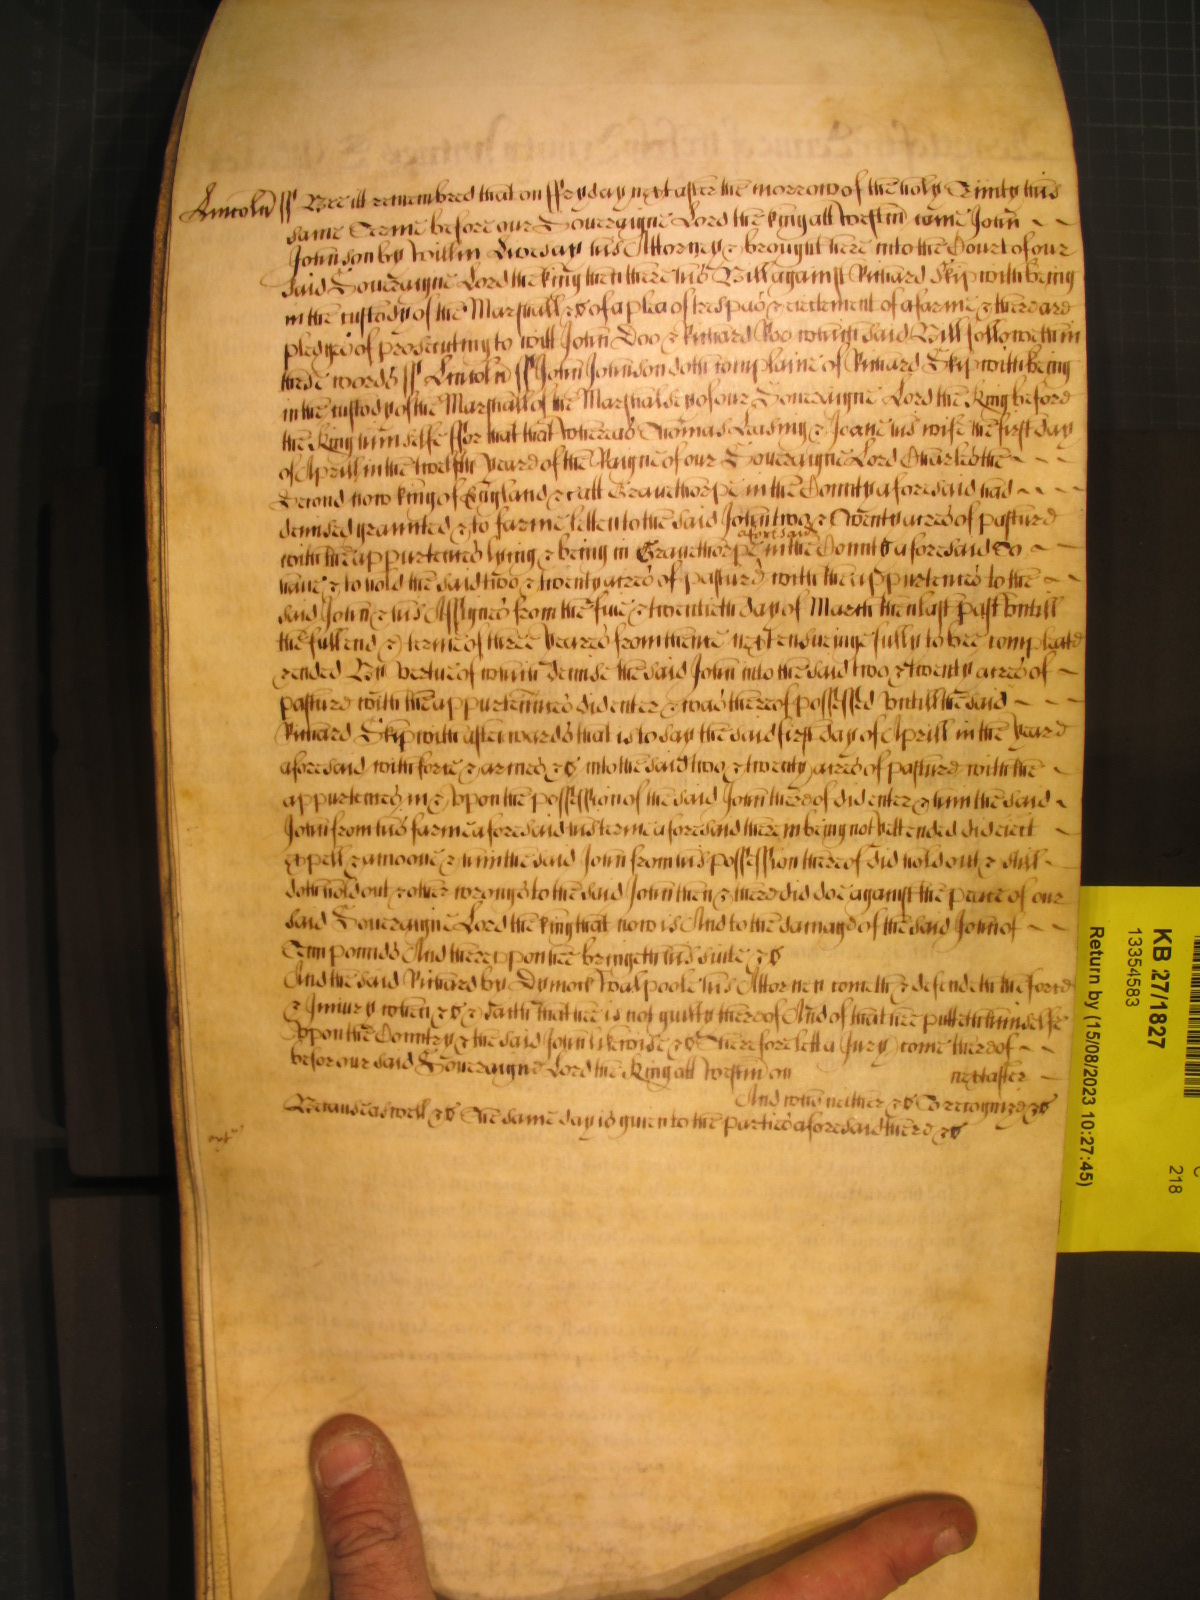 Lincoln ss Bee itt remembred that on ffryday next after the morrow of the holy Trinity this
same Terme before our Soveraigne Lord the king att Westm came John
Johnson by Willm Livesay his Attorney & brought here into the Court of our
said Soveraigne Lord the king then there his Bill against Richard Skipwith being
in the custody of the Marshall &c of a plea of trespas & eiectment of a farme & there are
pledges of prosecuting to witt John Doo & Richard Roo which said Bill followeth in
these words ss Lincoln ss John Johnson doth complaine of Richard Skipwith being
in the custody of the Marshall of the Marshalsey of our Soveraigne Lord the King before
the King himselfe ffor that that Whereas Thomas & Jeane his wife the first day
of Aprill in the twelfth yeare of the Reigne of our Soveraigne Lord Charles the
Second now king of England &c att Grauethorpe in the County aforesaid had
demised graunted & to farme letten to the said John two & Twenty acres of pasture
with the appurtences lying & being in Grauethorpe aforesaid in the County aforesaid To
haue & to hold the said two & twenty acres of pasture with the appurtences to the
said John & his Assignes from the fiue & twentieth day of March then last past vntill
the full end & terme of three yeares from thence next ensueinge fully to bee compleate
& ended By vertue of which demise the said John into the said two & twenty acres of
pasture with the appurtennces did enter & was thereof possessed vntill the said
Richard Skipwith afterwards that is to say the said first day of Aprill in the yeare
aforesaid with force & armes &c into the said two & twenty acres of pasture with the
appurtences in & vpon the possession of the said John thereof did enter & him the said
John from his farme aforesaid his terme aforesaid therein being not yett ended did eiect
expell & amoove & him the said John from his possession thereof did hold out & still
doth hold out & other wronges to the said John then & there did doe against the peace of our
said Soveraigne Lord the king that now is And to the damage of the said John of
Tenn pounds And therevpon hee bringeth his suite &c
And the said Richard by Dymock Walpoole his Attorney cometh & defendeth the force
& Iniury when &c & saith that hee is not guilty thereof And of that hee putteth himselfe
vpon the Country & the said John likewise &c Therefore lett a Jury come thereof
before our said Soveraigne Lord the King att Westm on next after
And who neither &c To recognize &c
Because aswell &c The same day is given to the parties aforesaid there &c
KB 27/1827
13354583
Return by (15/08/2023 10:27:45)
218